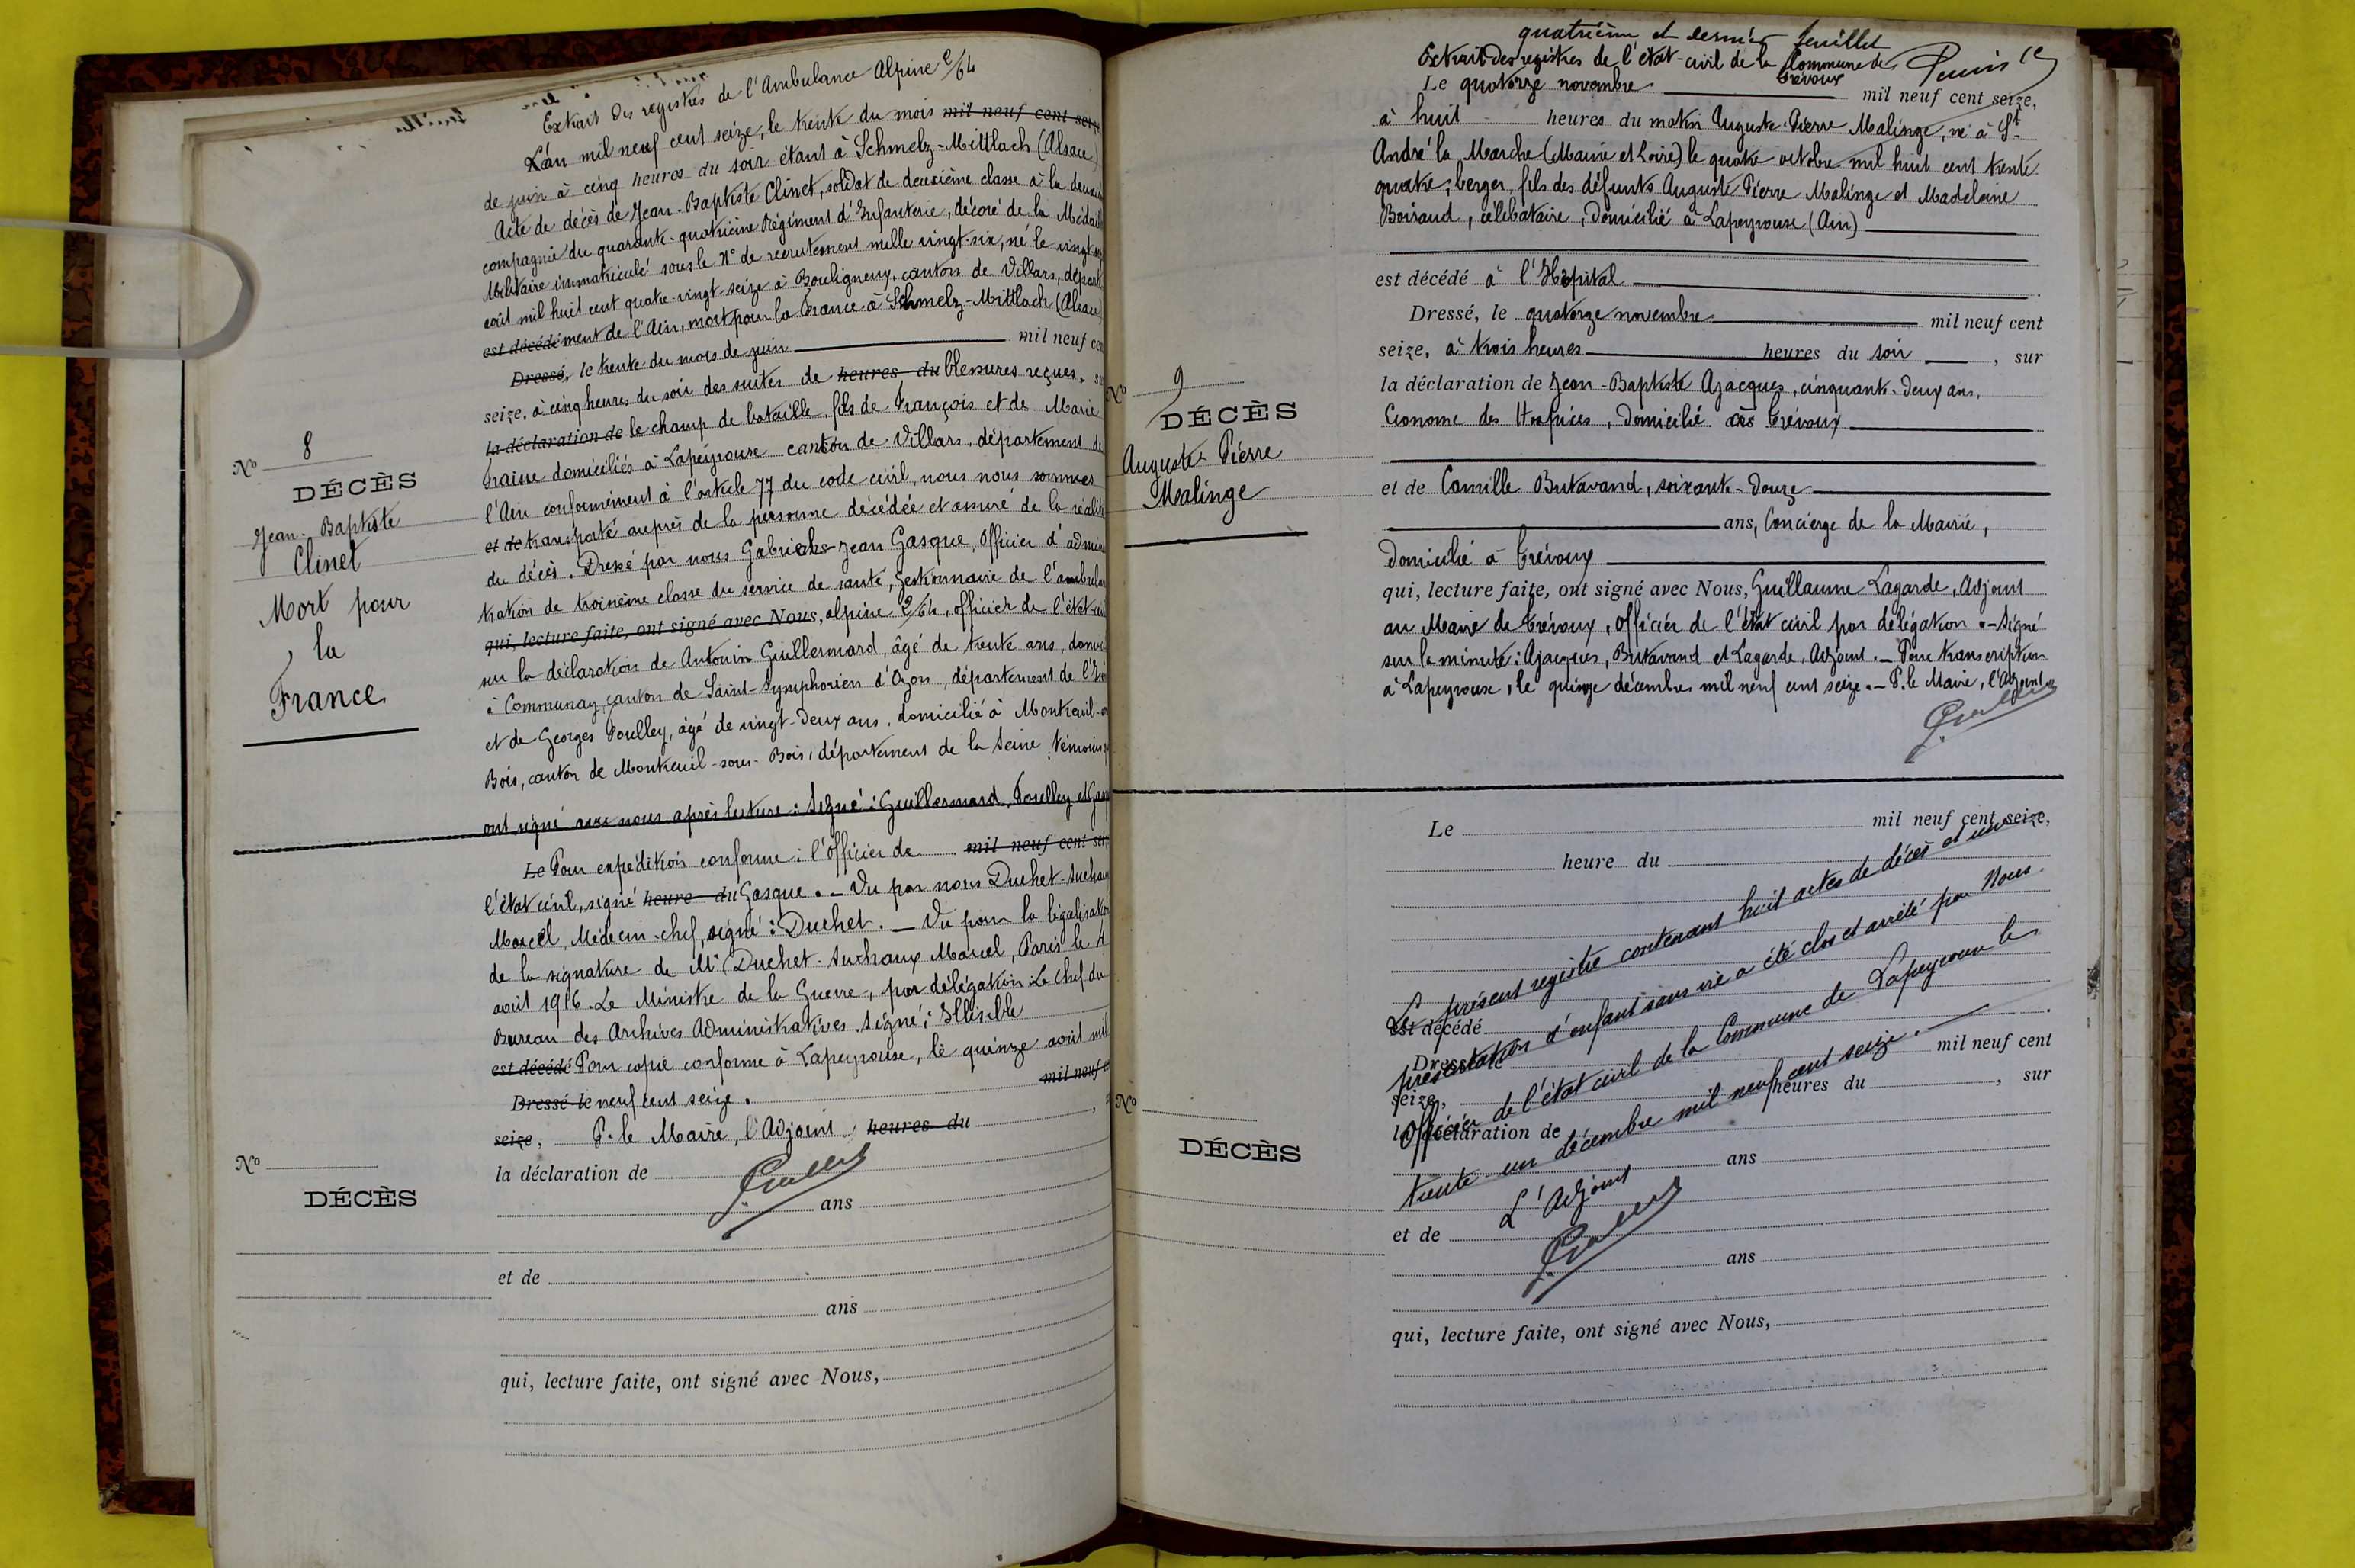 Extrait des registres de l'Ambulance Alpine 2/64
L'an mil neuf cent seize, le trente du mois mil neuf cent seize
de juin à cinq heures du soir étant à Schmelz-Mittlach (Alsace)
Acte de décès de Jean-Baptiste Clinet, soldat de deuxième classe à la deuxiè
compagnie du quarante-quatrième Régiment d'Infanterie, décoré de la Médaille
Militaire immatriculé sous le N° de recrutement mille vingt-six, né le vingt
août mil huit cent quatre-vingt-seize à Bouligneux, canton de Villars, départe
est décédé ment de l'Ain, mort pour la France à Schmelz-Mittlach (Alsace)
Dressé, le trente du mois de juin mil neuf cen
seize, à cinq heures du soir des suites de heures du blessures reçues, su
la déclaration de le champ de bataille, fils de François et de Marie
domiciliés à Lapeyrouse canton de Villars, département de
l'Ain conformément à l'article 77 du code civil, nous nous sommes
et de transporté auprès de la personne décédée et assuré de la réalité
du décès. Dressé par nous Gabriel-Jean Gasque, Officier d'adminis
tration de troisième classe du service de santé, gestionnaire de l'ambulan
qui, lecture faite, ont signé avec Nous, alpine 2/64, officier de l'état civil
sur la déclaration de Antonin Guillermard, âgé de trente ans, domici
à Communay, canton de Saint-Symphorien d'Ozon, département de l'Isè
et de Georges Poulley, âgé de vingt-deux ans, domicilié à Montreuil-s
Bois, canton de Montreuil-sous-Bois, département de la Seine, témoins q
ont signé avec nous après lecture : Signé : Guillermard, Poulley et Gasq
N° 8
DÉCÈS
Jean-Baptiste
Clinet
Mort pour
la
France
Le Pour expédition conforme : l'Officier de mil neuf cent seiz
l'état civil, signé heure du Gasque. – Vu par nous Duchet-Suchaux
Marcel, Médecin-chef, signé : Duchet. – Vu pour la légalisation
de la signature de Mr Duchet-Suchaux Marcel, Paris le 4
août 1916. Le Ministre de la Guerre, par délégation : Le Chef du
Bureau des Archives Administratives. Signé : Illisible
est décédé Pour copie conforme à Lapeyrouse, le quinze août mil
Dressé le neuf cent seize. mil neuf c
seize, P. le Maire, l'Adjoint heures du
la déclaration de
ans
et de
ans
qui, lecture faite, ont signé avec Nous,
N°
DÉCÈS
quatrième et dernier feuillet
Extrait des registres de l'état-civil de la Commune de
Trévoux
Le quatorze novembre mil neuf cent seize,
à huit heures du matin Auguste-Pierre Malinge, né à St
André la Marche (Maine et Loire) le quatre octobre mil huit cent trente
quatre, berger, fils des défunts Auguste Pierre Malinge et Madeleine
Boiraud, célibataire, domicilié à Lapeyrouse (Ain)
est décédé à l'Hôpital
Dressé, le quatorze novembre mil neuf cent
seize, à trois heures heures du soir, sur
la déclaration de Jean-Baptiste Ajacques, cinquante-deux ans,
Econome des Hospices, domicilié à Trévoux
et de Camille Butavand, soixante-douze
ans, Concierge de la Mairie,
domicilié à Trévoux
qui, lecture faite, ont signé avec Nous, Guillaume Lagarde, Adjoint
au Maire de Trévoux, Officier de l'état civil par délégation. – Signé
sur la minute : Ajacques, Butavand et Lagarde, Adjoint. – Pour transcription
à Lapeyrouse, le quinze décembre mil neuf cent seize. – P. le Maire, l'Adjoint
N° 9
DÉCÈS
Auguste Pierre
Malinge
Le mil neuf cent seize,
heure du
Le présent registre contenant huit actes de décès et une
est décédé
présentation d'enfant sans vie a été clos et arrêté par Nous
Dressé le mil neuf cent
Officier de l'état civil de la Commune de Lapeyrouse le
seize, heures du , sur
trente-un décembre mil neuf cent seize.
la déclaration de
ans
L'Adjoint
et de
ans
qui, lecture faite, ont signé avec Nous,
N°
DÉCÈS